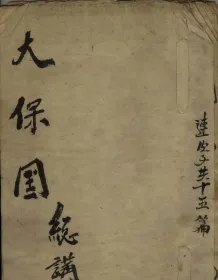 連皮子共十五篇
大保国
總講